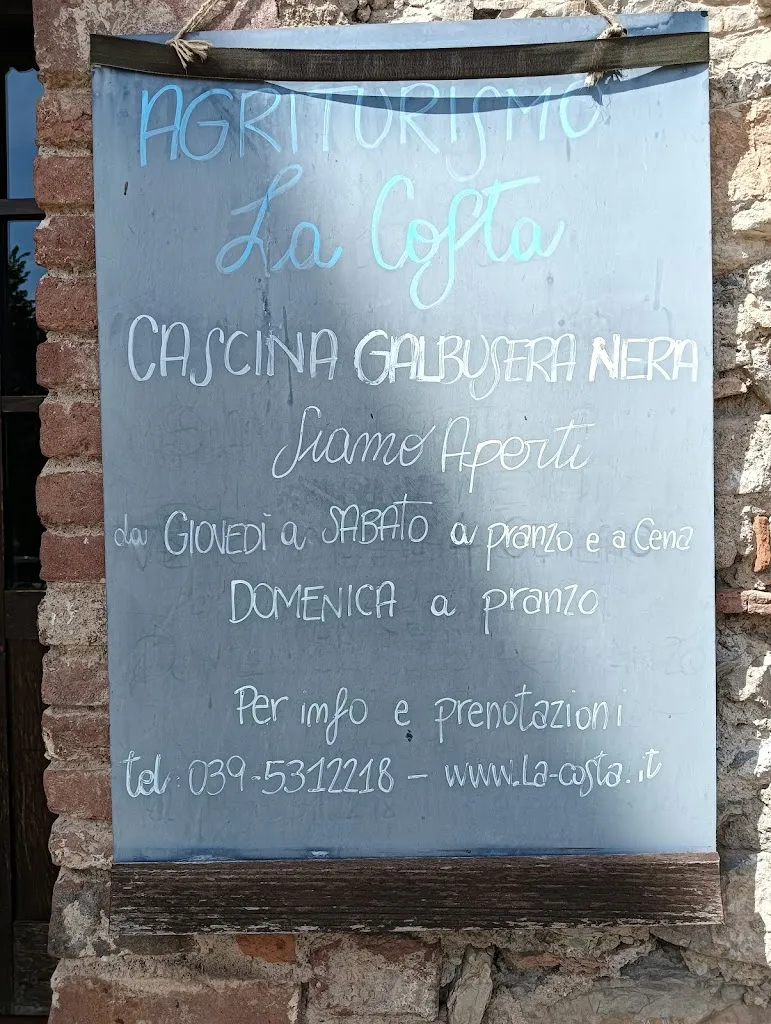 AGRITURISMO
La Costa
CASCINA GALBUSERA NERA
Siamo Aperti
da GIOVEDÌ a SABATO a pranzo e a Cena
DOMENICA a pranzo
Per info e prenotazioni
tel: 039-5312218 - www.La-costa.it